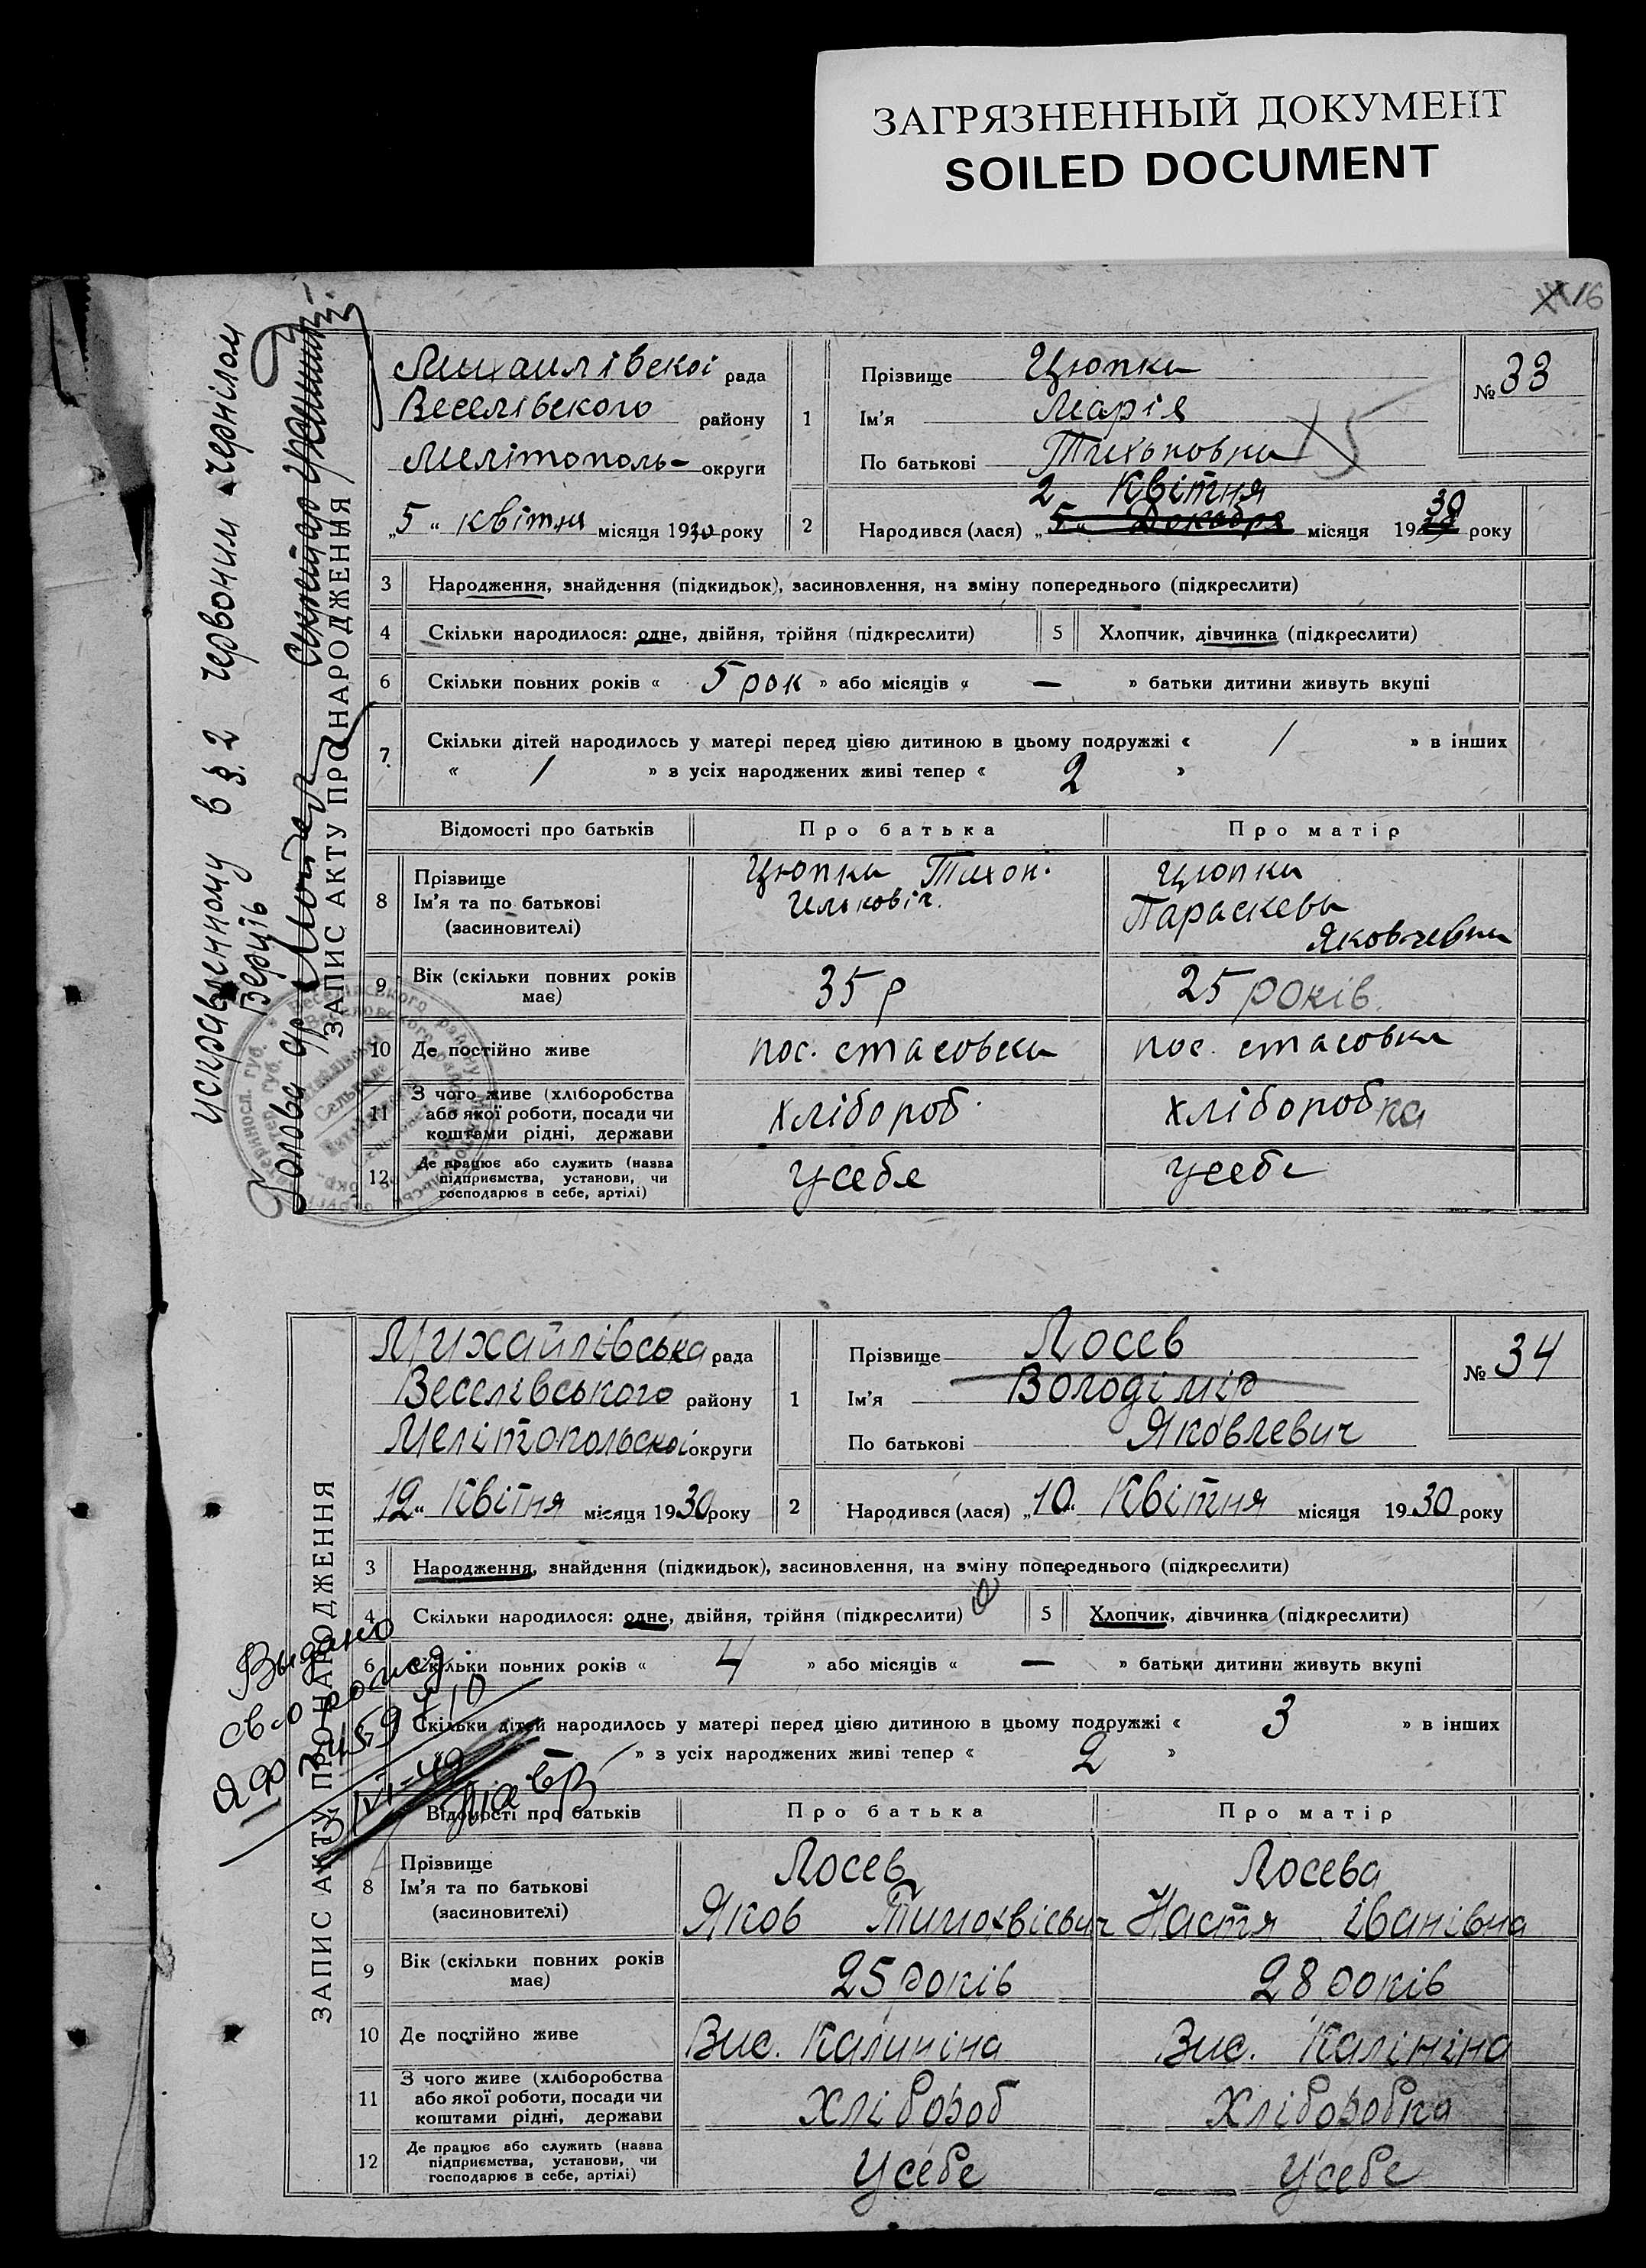 ЗАГРЯЗНЕННЫЙ ДОКУМЕНТ
SOILED DOCUMENT
16
исправленному в §. 2 червоним чернілом
Верціь
Голова с/р Секретар
ЗАПИС АКТУ ПРО НАРОДЖЕННЯ
Михаилівскоі рада
Веселівского району
Мелітополь- округи
„5“ квітня місяця 1930 року
1
Прізвище Цюпка
Ім'я Марія
По батькові Тихьновна
№ 33
2 Квітня 30
2 Народився (лася) „5“ Декабря місяця 1929 року
3 Народження, знайдення (підкидьок), засиновлення, на зміну попереднього (підкреслити)
4 Скільки народилося: одне, двійня, трійня (підкреслити) 5 Хлопчик, дівчинка (підкреслити)
6 Скільки повних років « 5 рок » або місяців « — » батьки дитини живуть вкупі
7 Скільки дітей народилось у матері перед цією дитиною в цьому подружжі « / » в інших
« / » з усіх народжених живі тепер « 2 »
Відомості про батьків Про батька Про матір
8 Прізвище Цюпка Тихон. Цюпка
Ім'я та по батькові Ильковіч. Параскева
(засиновителі) Яковлевна
9 Вік (скільки повних років має) 35 р 25 років.
10 Де постійно живе пос. стасовка пос. стасовка
11 З чого живе (хліборобства
або якої роботи, посади чи хлібороб хліборобка
коштами рідні, держави
12 Де працює або служить (назва
підприємства, установи, чи усебе усебе
господарює в себе, артілі)
ЗАПИС АКТУ ПРО НАРОДЖЕННЯ
Михайлівська рада
Веселівського району
Мелітопольскоі округи
12“ Квітня місяця 1930 року
1
Прізвище Лосев
Ім'я Володімір
По батькові Яковлевич
№ 34
2 Народився (лася) „10“ Квітня місяця 1930 року
3 Народження, знайдення (підкидьок), засиновлення, на зміну попереднього (підкреслити)
4 Скільки народилося: одне, двійня, трійня (підкреслити) 5 Хлопчик, дівчинка (підкреслити)
6 Скільки повних років « 4 » або місяців « — » батьки дитини живуть вкупі
Скільки дітей народилось у матері перед цією дитиною в цьому подружжі « 3 » в інших
» з усіх народжених живі тепер « 2 »
Видано
св-о
Відомості про батьків Про батька Про матір
8 Прізвище Лосев Лосева
Ім'я та по батькові Яков Тимохвієвич Настя Іванівна
(засиновителі)
9 Вік (скільки повних років має) 25 років 28 років
10 Де постійно живе Вис. Калиніна Вис. Калініна
11 З чого живе (хліборобства
або якої роботи, посади чи Хлібороб Хліборобка
коштами рідні, держави
12 Де працює або служить (назва
підприємства, установи, чи Усебе Усебе
господарює в себе, артілі)